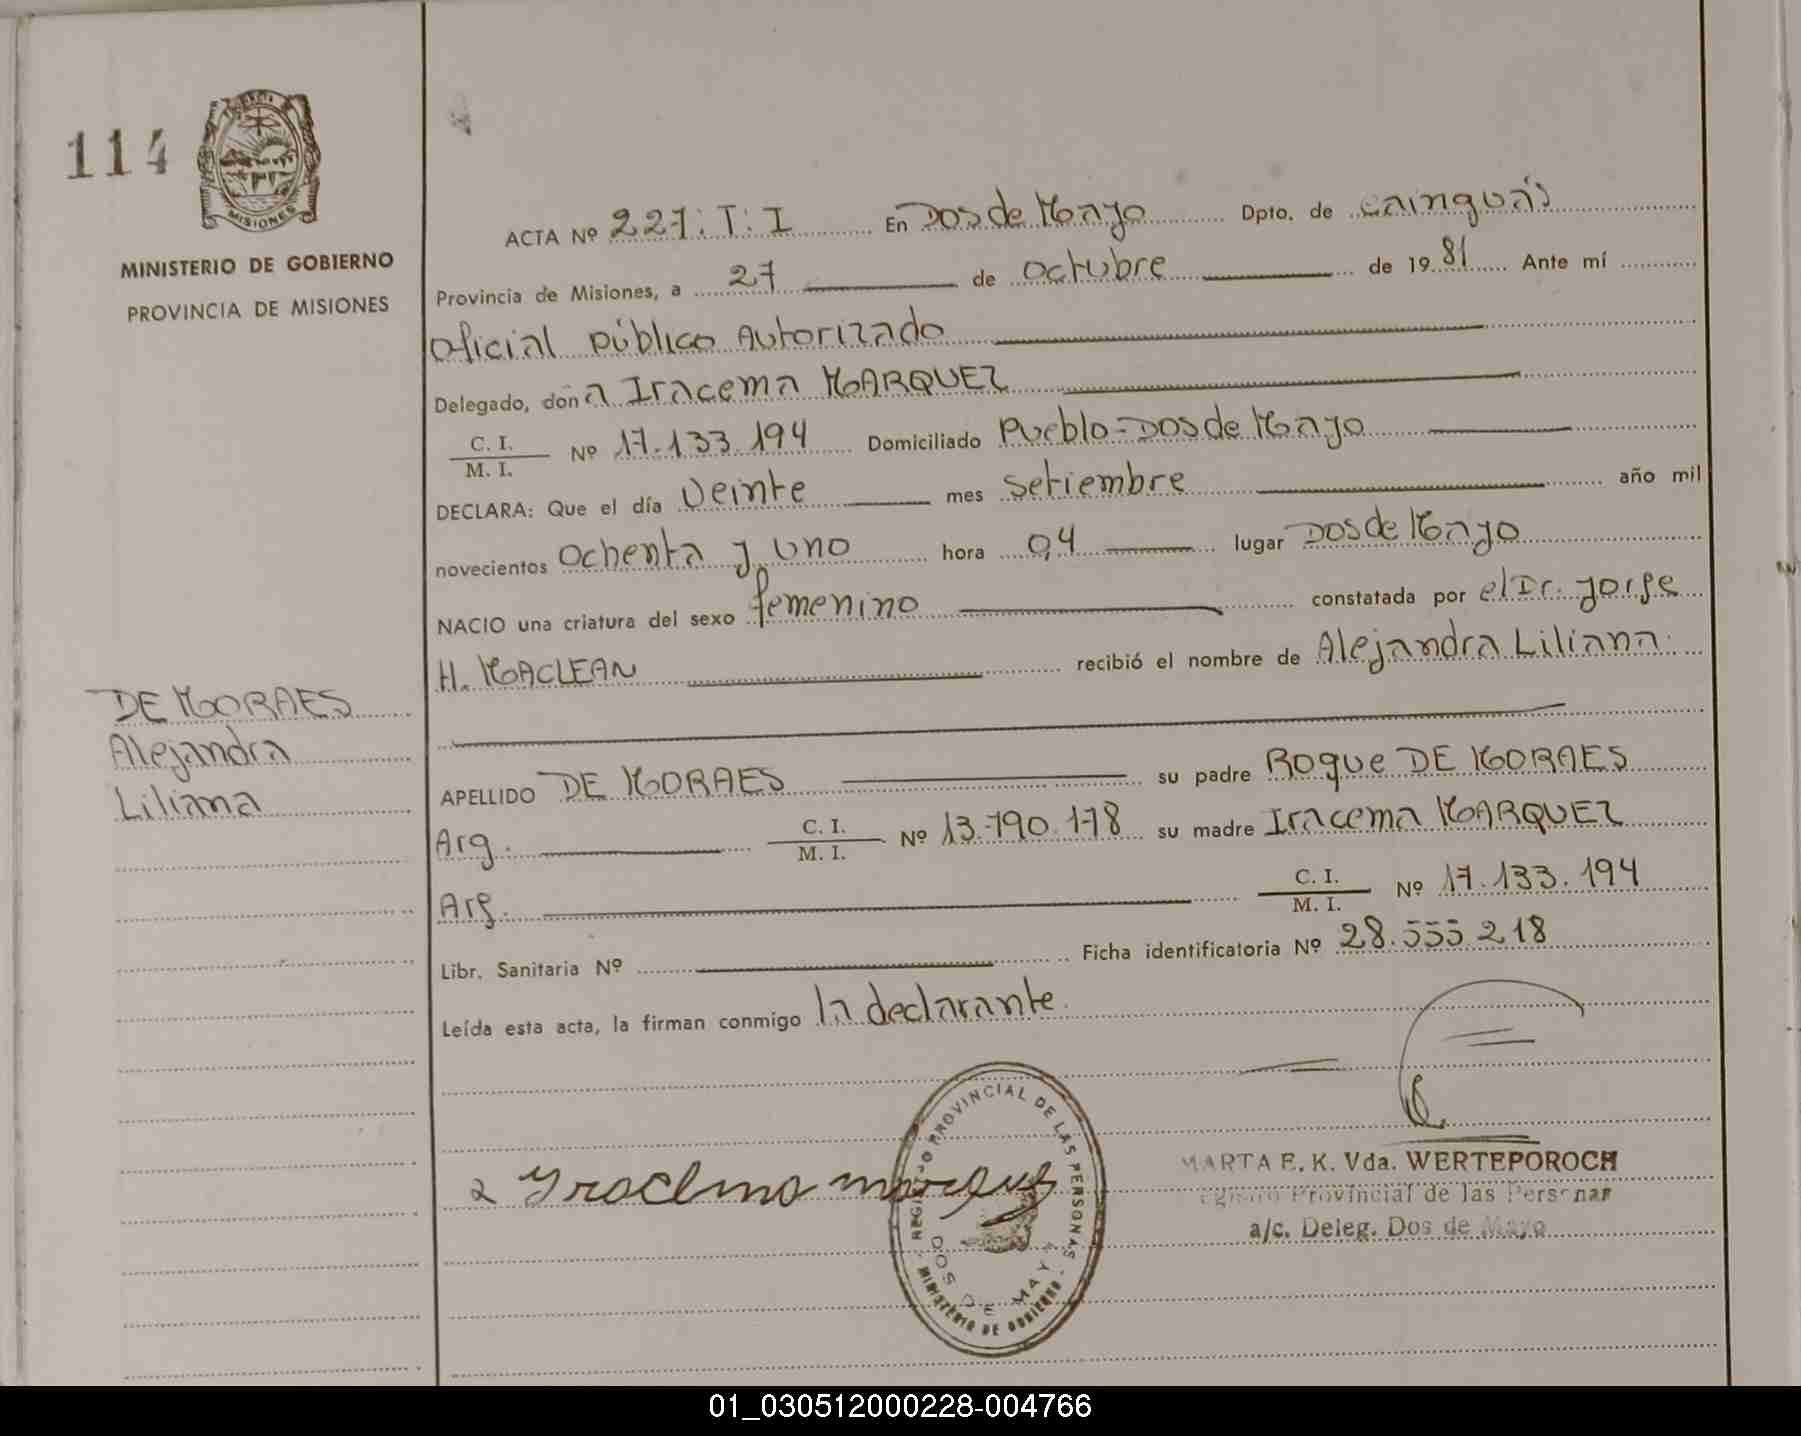 114
MISIONES
MINISTERIO DE GOBIERNO
PROVINCIA DE MISIONES
DE MORAES
Alejandra
Liliana
ACTA Nº 227: T: I En Dos de Mayo Dpto. de Cainguás
Provincia de Misiones, a 27 de octubre de 1981 Ante mí
Oficial Público Autorizado
Delegado, dona Iracema MARQUEZ
C. I.
M. I. Nº 17.133.194 Domiciliado Pueblo-Dos de Mayo
DECLARA: Que el día Veinte mes Setiembre año mil
novecientos ochenta y uno hora 0,4 lugar Dos de Mayo
NACIO una criatura del sexo femenino constatada por el Dr. Jorge
H. MACLEAN recibió el nombre de Alejandra Liliana.
APELLIDO DE MORAES su padre Roque DE MORAES
Arg. C. I.
M. I. Nº 13.790.178 su madre Iracema MARQUEZ
Arg. C. I.
M. I. Nº 17.133.194
Libr. Sanitaria Nº Ficha identificatoria Nº 28.555218
Leída esta acta, la firman conmigo la declarante.
REGISTRO PROVINCIAL DE LAS PERSONAS
DOS DE MAYO
MINISTERIO DE GOBIERNO
MARTA E. K. Vda. WERTEPOROCH
Registro Provincial de las Personas
a/c. Deleg. Dos de Mayo
01_030512000228-004766